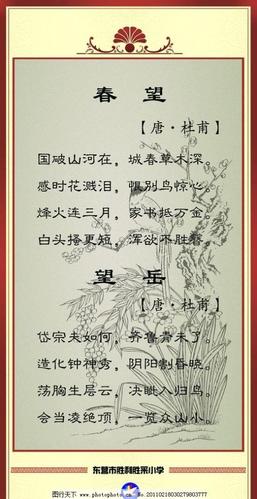 春 望
【唐·杜甫】
国破山河在，城春草木深。
感时花溅泪，恨别鸟惊心。
烽火连三月，家书抵万金。
白头搔更短，浑欲不胜簪。
望 岳
【唐·杜甫】
岱宗夫如何，齐鲁青未了。
造化钟神秀，阴阳割昏晓。
荡胸生层云，决眦入归鸟。
会当凌绝顶，一览众山小。
东营市胜利胜采小学
图行天下 www.photophoto.cn No.20110218030279803777